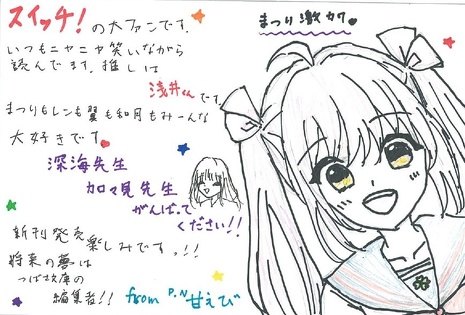 スイッチ!の大ファンです。
いつもニヤニヤ笑いながら
読んでます。推しは
浅井くんです。
まつりもレンも翼も和月もみーんな
大好きです。
深海先生
加々見先生
がんばって
ください!!
新刊発売楽しみですっ!!
将来の夢は
つばさ文庫の
編集者!!
from P.N 甘えび
まつり激カワ